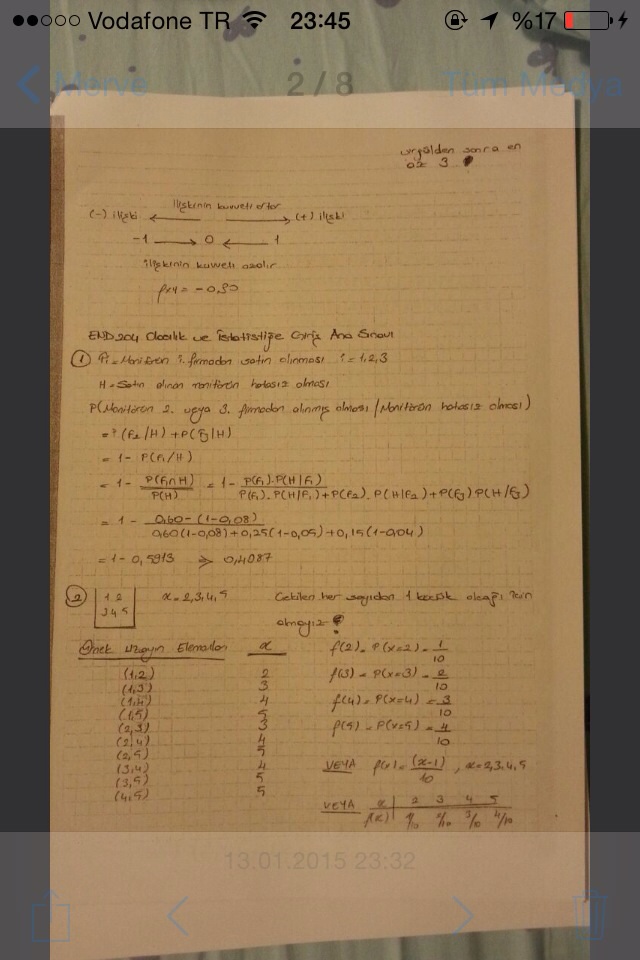 Vodafone TR 23:45 %17
Merve 2 / 8 Tüm Medya
virgülden sonra en
az 3
ilişkinin kuvveti artar
(-) ilişki (+) ilişki
-1 → 0 ← 1
ilişkinin kuvveti azalır
ρxy = -0,90
END204 Olasılık ve İstatistiğe Giriş Ana Sınavı
① Fi = Monitörün i. firmadan satın alınması i = 1,2,3
H = Satın alınan monitörün hatasız olması
P(Monitörün 2. veya 3. firmadan alınmış olması / Monitörün hatasız olması)
= P(F2/H) + P(F3/H)
= 1 - P(F1/H)
= 1 - P(F1∩H) / P(H) = 1 - P(F1).P(H|F1) / P(F1).P(H|F1) + P(F2).P(H|F2) + P(F3).P(H|F3)
= 1 - 0,60 - (1-0,08) / 0,60(1-0,08) + 0,25(1-0,05) + 0,15(1-0,04)
= 1 - 0,5913 ⇒ 0,4087
② 1 2 x = 2,3,4,5 Çekilen her sayıdan 1 tane olacağı için
3 4 5 olmayız
Örnek Uzayın Elemanları x f(2) = P(x=2) = 1/10
(1,2) 2 f(3) = P(x=3) = 2/10
(1,3) 3
(1,4) 4 f(4) = P(x=4) = 3/10
(1,5) 5
(2,3) 3 f(5) = P(x=5) = 4/10
(2,4) 4
(2,5) 5
(3,4) 4 VEYA f(x) = (x-1)/10 , x=2,3,4,5
(3,5) 5
(4,5) 5 VEYA x 2 3 4 5
f(x) 1/10 2/10 3/10 4/10
13.01.2015 23:32